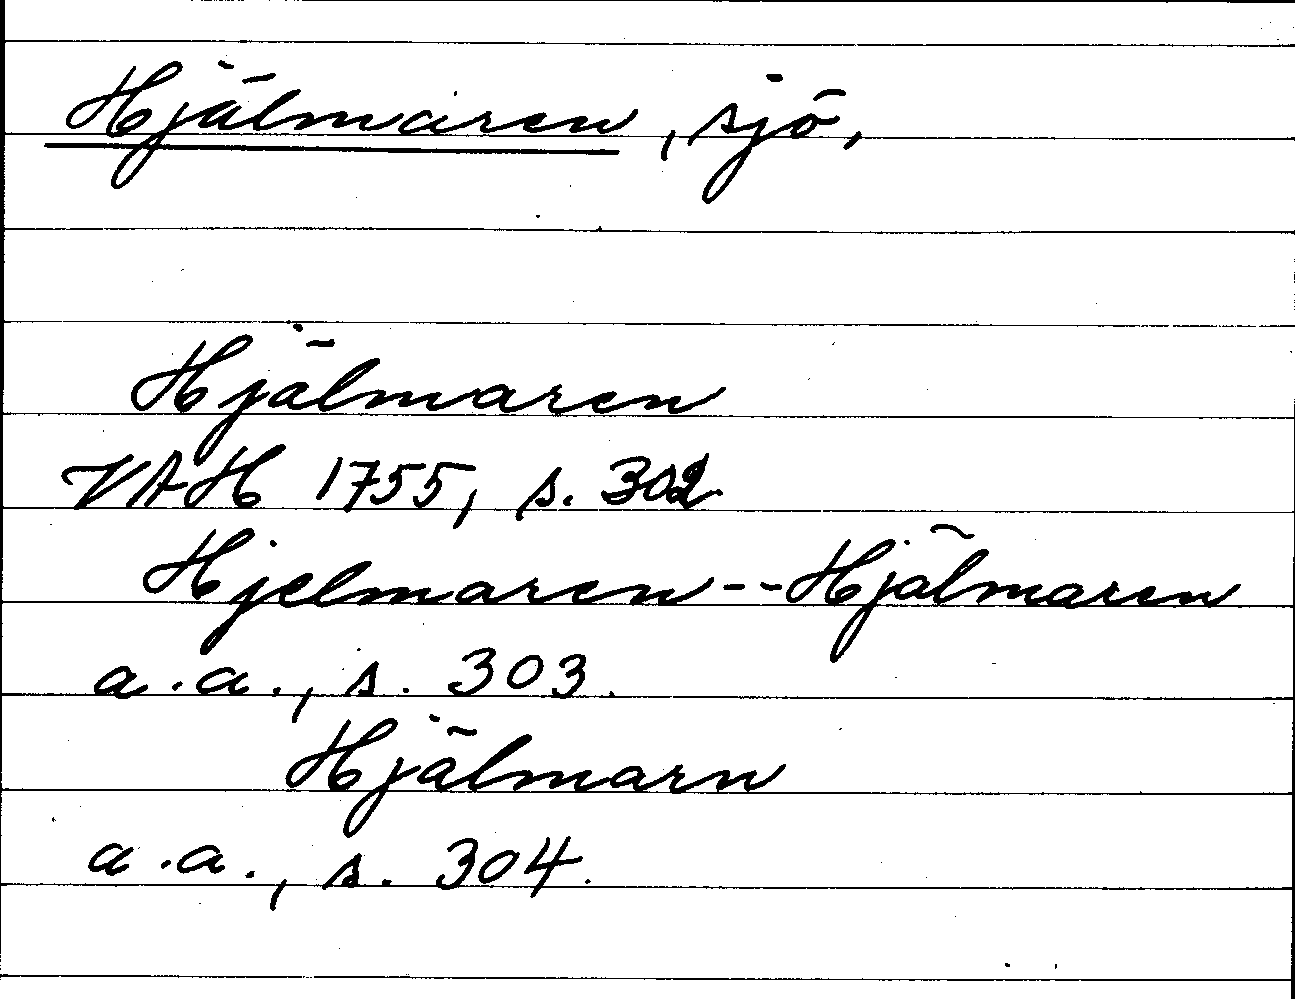 Hjälmaren, sjö,
Hjälmaren
VAH 1755, s. 302.
Hjelmaren--Hjälmaren
a.a., s. 303.
Hjälmarn
a.a., s. 304.